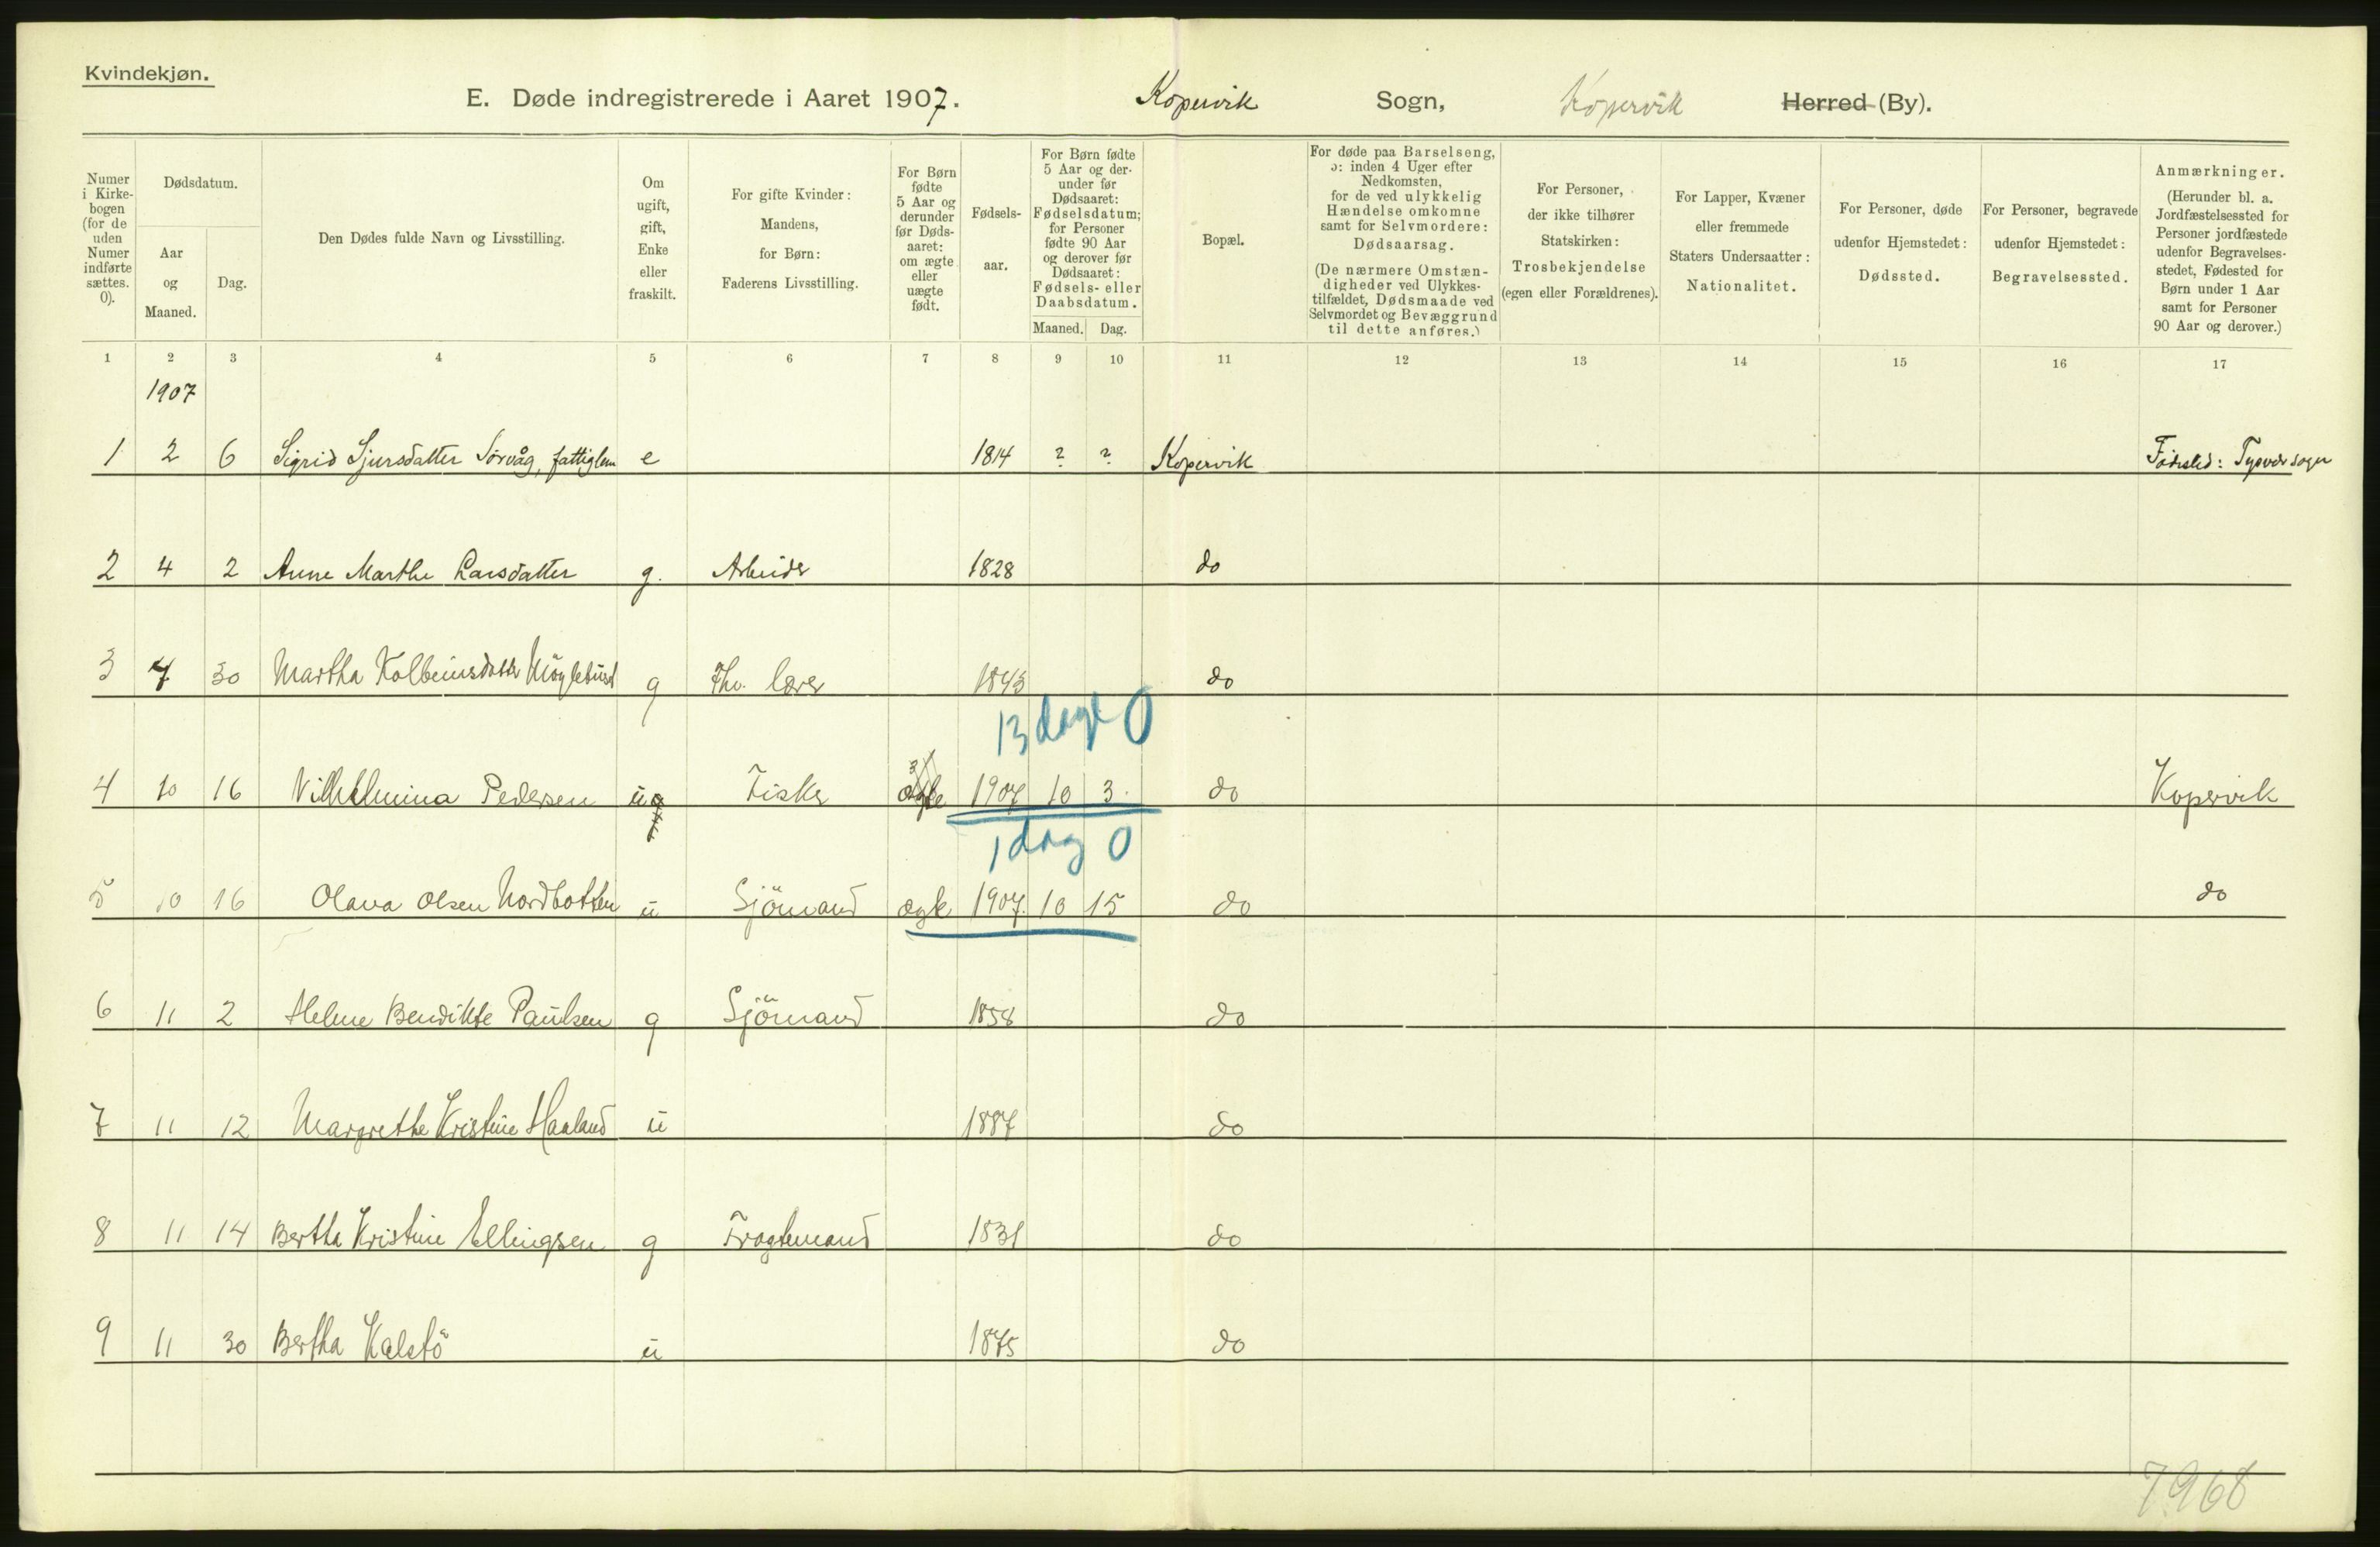 Kvindekjøn.
E. Døde indregistrerede i Aaret 1907. Kopervik Sogn, Kopervik Herred (By).
Numer i Kirkebogen (for de uden Numer indførte sættes. 0).
Dødsdatum.
Aar og Maaned.
Dag.
Den Dødes fulde Navn og Livsstilling.
Om ugift, gift, Enke eller fraskilt.
For gifte Kvinder: Mandens, for Børn: Faderens Livsstilling.
For Børn fødte 5 Aar og derunder før Dødsaaret: om ægte eller uægte født.
Fødselsaar.
For Børn fødte 5 Aar og derunder før Dødsaaret: Fødselsdatum; for Personer fødte 90 Aar og derover før Dødsaaret: Fødsels- eller Daabsdatum.
Maaned. Dag.
Bopæl.
For døde paa Barselseng, ɔ: inden 4 Uger efter Nedkomsten, for de ved ulykkelig Hændelse omkomne samt for Selvmordere: Dødsaarsag.
(De nærmere Omstændigheder ved Ulykkestilfældet, Dødsmaade ved Selvmordet og Bevæggrund til dette anføres.)
For Personer, der ikke tilhører Statskirken: Trosbekjendelse (egen eller Forældrenes).
For Lapper, Kvæner eller fremmede Staters Undersaatter: Nationalitet.
For Personer, døde udenfor Hjemstedet: Dødssted.
For Personer, begravede udenfor Hjemstedet: Begravelsessted.
Anmærkninger. (Herunder bl. a. Jordfæstelsessted for Personer jordfæstede udenfor Begravelsesstedet, Fødested for Børn under 1 Aar samt for Personer 90 Aar og derover.)
1 2 3 4 5 6 7 8 9 10 11 12 13 14 15 16 17
1907
1 2 6 Sigrid Sjursdatter Sørvåg, fattiglem e 1814 ? ? Kopervik Fødested: Tysvær sogn
2 4 2 Anne Marthe Larsdatter g. Arbeider 1828 do
3 7 30 Martha Kolbeinsdatter g Fhv. lærer 1843 do
13 dage 0
4 10 16 Vilhelmina Pedersen u Fisker ægte 1907 10 3. do Kopervik
1 dag 0
5 10 16 Olava Olsen Nordbotten u Sjömand ægte 1907. 10 15 do do
6 11 2 Helene Bendikte Paulsen g Sjömand 1858 do
7 11 12 Margrethe Kristine Haaland u 1887 do
8 11 14 Bertha Kristine Ellingsen g Fragtemand 1831 do
9 11 30 Bertha Kalstö u 1875 do
7968